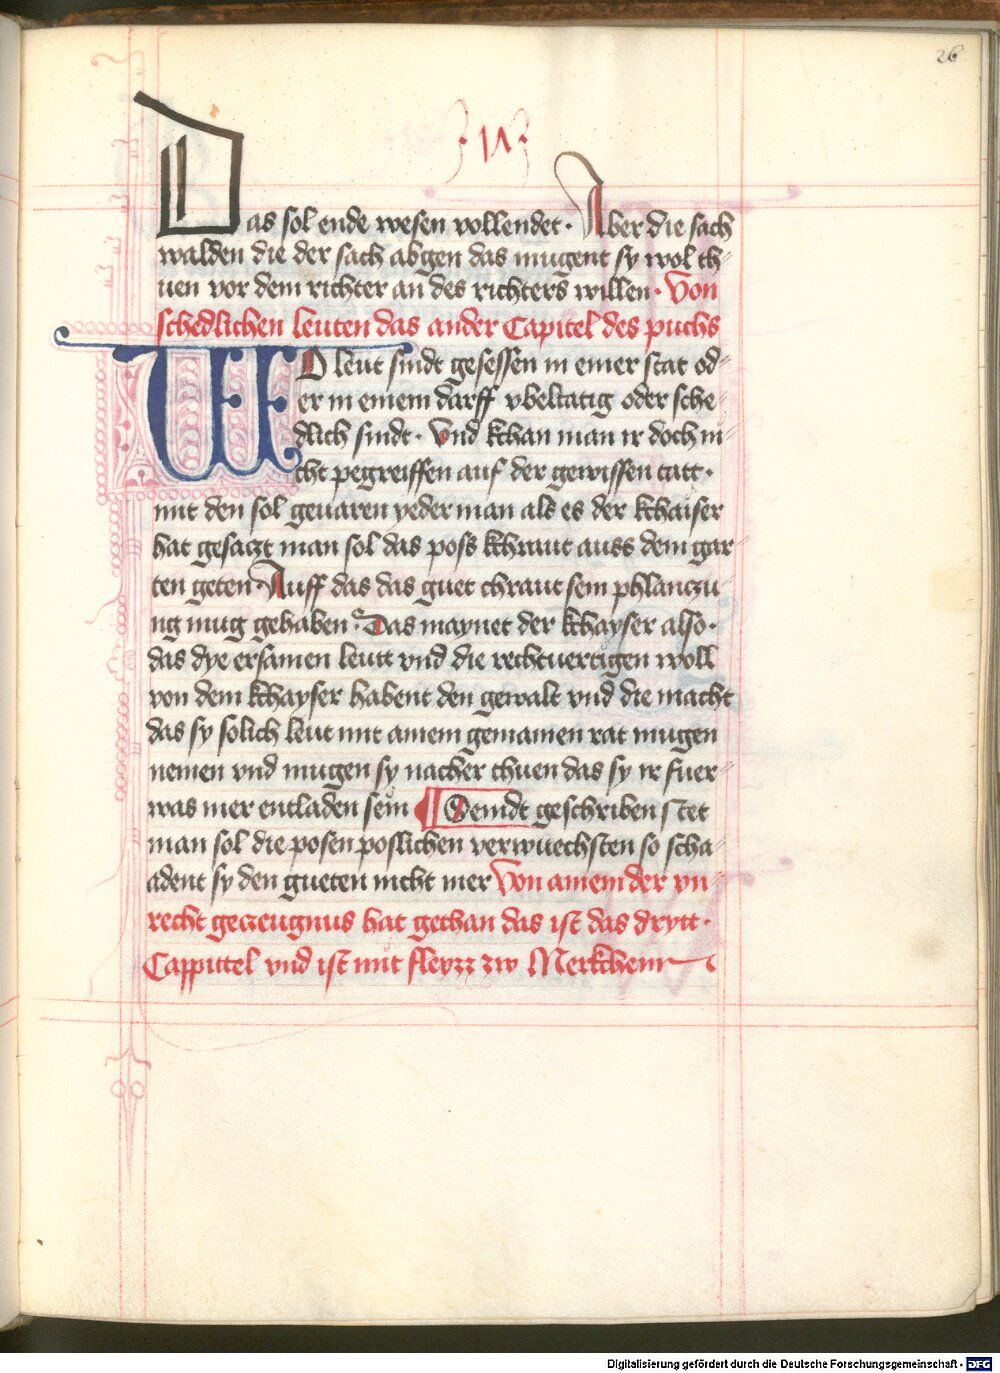 26
Das sol ende wesen vollendet · Aber die sach
walden die der sach abgen das mugent sy wol th-
uen vor dem richter an des richters willen · Von
schedlichen leuten das ander Capitel des puchs
WO leut sindt gesessen in einer stat od-
er in einem darff vbeltatig oder sche-
dlich sindt · Vnd kchan man ir doch ni-
cht pegreiffen auf der gewissen tatt ·
mit den sol geuaren yeder man als es der kchaiser
hat gesaczt man sol das poss kchraut auss dem gar-
ten geten · Auff das das guet chraut sein phlanczu-
ng mug gehaben · Das maynet der kchayser also ·
das dye ersamen leutt vnd die rechtuertigen woll
von dem kchayser habent den gewalt vnd die macht
das sy solich leut mit ainem gemainen rat mugen
nemen vnd mugen sy nacher thuen das sy ir fuer-
was mer entladen sein Demdt geschriben stet
man sol die posen poslichen verwuechsten so scha-
adent sy den gueten nicht mer Von ainem der vn-
recht geczeugnus hat gethan das ist das drytt ·
Cappittel vnd ist mit fleyzz zw Merkchenn
Digitalisierung gefördert durch die Deutsche Forschungsgemeinschaft - DFG